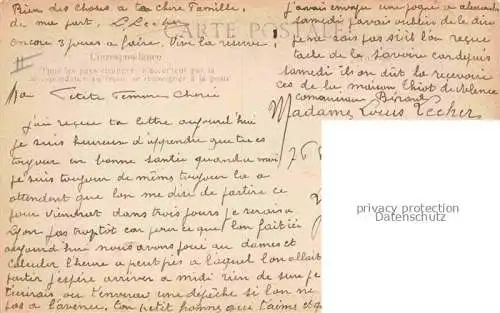 Bien des choses à ta chère Famille
de ma part. L Lecher
encore 3 jours a faire. Vive la reserve!
CARTE POSTALE
Correspondance
Tous les pays étrangers n'acceptent pas la
Ma Petite Femme Cherie
J'ai reçue ta lettre aujourd'hui
je suis heureux d'apprendre que tu es
toujour en bonne santée quand a moi
je suis toujour de même toujour la a
attendent que l'on me dise de partire ce
jour viendrat dans trois jours je serais a
Lyon pas trop tot car pour ce que l'on fait ici
aujourd'hui nous avons joué au dames et
calculer l'heure a peut près a laquel l'on allait
partir j'espère arriver a midi rien de sure je
t'écrirais ou t'enverai une dépêche si l'on ne
pas a l'avence. Ton petit homme qui t'aime et
j'avais envoyé une
samedi j'avais oublier de la dire
sais pas si il l'on reçue
tache de le savoire car depuis
samedi ils on dût la recevoir
ces de la maison Chiot de Valence
Madame Louis Lecher
privacy protection
Datenschutz